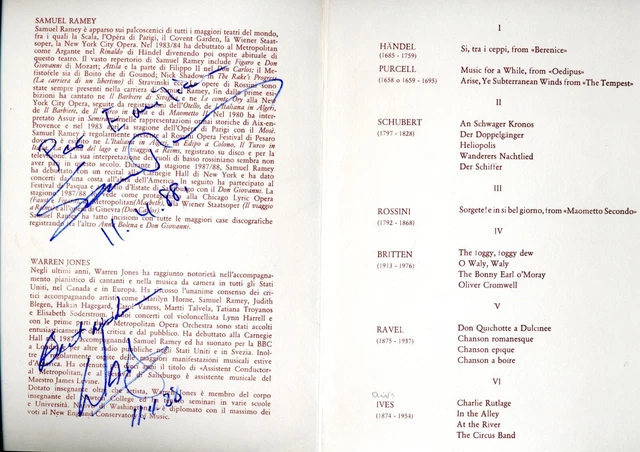 SAMUEL RAMEY
Samuel Ramey è apparso sui palcoscenici di tutti i maggiori teatri del mondo,
fra i quali la Scala, l'Opéra di Parigi, il Covent Garden, la Wiener Staat-
soper, la New York City Opera. Nel 1983/84 ha debuttato al Metropolitan
come Argante nel Rinaldo di Händel divenendo poi ospite abituale di
questo teatro. Il vasto repertorio di Samuel Ramey include Figaro e Don
Giovanni di Mozart; Attila e la parte di Filippo II nel Carlos; il Me-
fistofele sia di Boito che di Gounod; Nick Shadow in The Rake's Progress
(La carriera di un libertino) di Stravinski
state sempre presenti nella carriera di Samuel Ramey, fin dalle prime esi-
bizioni ha cantato ne Il Barbiere di e ne Le comte Ory alla New
York City Opera, seguite da Otello, de L'Italiana in Algeri,
de Il Barbiere, de Il Turco in e di Maometto Nel 1980 ha inter-
pretato Assur in Semiramide nelle rappresentazioni ormai storiche di Aix-en-
Provence e nel 1983 la stagione dell'Opéra di Parigi con il Mosè.
Samuel Ramey è regolarmente al Rossini Opera Festival di Pesaro
Edipo a Colono, Il Turco in
del lago e Il viaggio a Reims, registrato su disco e per la
televisione. La sua interpretazione dei ruoli di basso rossiniano sembra non
aver pari in questo secolo. Durante la stagione 1987/88, Samuel Ramey
ha debuttato con un recital Carnegie Hall di New York e ha dato
concerti da una costa all'altra dell'America. In seguito ha partecipato al
Festival di Pasqua e d'Estate di con il Don Giovanni. La
stagione 1987/88 lo vede come protagonista alla Chicago Lyric Opera
(Faust), Metropolitan (Macbeth), Wiener Staatsoper (Il viaggio
a Reims) all'Opera di Ginevra
Samuel Ramey ha fatto incisioni con tutte le maggiori case discografiche
registrando tra l'altro Anna Bolena e Don Giovanni.
11.4.88
WARREN JONES
Negli ultimi anni, Warren Jones ha raggiunto notorietà nell'accompagna-
mento pianistico di cantanti e nella musica da camera in tutti gli Stati
Uniti, nel Canada e in Europa. Ha riscosso l'unanime consenso dei cri-
tici accompagnando artisti come Marilyn Horne, Samuel Ramey, Judith
Blegen, Håkan Hagegård, Carol Vaness, Martti Talvela, Tatiana Troyanos
e Elisabeth Söderström. I suoi concerti col violoncellista Lynn Harrell e
con le prime parti della Metropolitan Opera Orchestra sono stati accolti
entusiasticamente dalla critica e dal pubblico. Ha debuttato alla Carnegie
Hall nel 1987 accompagnando Samuel Ramey ed ha suonato per la BBC
a Londra e per altre radio pubbliche negli Stati Uniti e in Svezia. Inol-
tre è regolarmente ospite delle maggiori manifestazioni musicali estive
d'America. Ha il titolo di «Assistent Conductor»
al Metropolitan, di Salisburgo è assistente musicale del
Maestro James Levine.
Dotato insegnante oltre che artista, Warren Jones è membro del corpo
insegnante del College ed ha seminari in varie scuole
e Università. di Washington si è diplomato con il massimo dei
voti al New England Conservatory of Music.
11.4.88
I
HÄNDEL Si, tra i ceppi, from «Berenice»
(1685 - 1759)
PURCELL Music for a While, from «Oedipus»
(1658 o 1659 - 1695) Arise, Ye Subterranean Winds from «The Tempest»
II
SCHUBERT An Schwager Kronos
(1797 - 1828) Der Doppelgänger
Heliopolis
Wanderers Nachtlied
Der Schiffer
III
ROSSINI Sorgete! e in sì bel giorno, from «Maometto Secondo»
(1792 - 1868)
IV
BRITTEN The foggy, foggy dew
(1913 - 1976) O Waly, Waly
The Bonny Earl o'Moray
Oliver Cromwell
V
RAVEL Don Quichotte a Dulcinee
(1875 - 1937) Chanson romanesque
Chanson epique
Chanson a boire
VI
IVES Charlie Rutlage
(1874 - 1954) In the Alley
At the River
The Circus Band